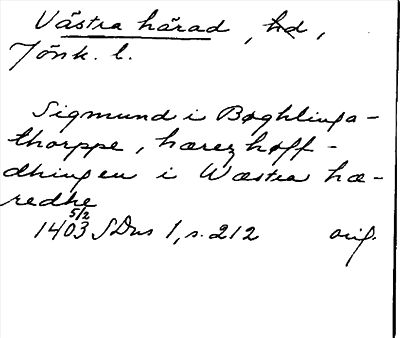 Västra härad, hd,
Jönk. l.
Sigmund i Bøghlinga-
thorppe, hærezhøff-
dhingen i Wæstra hæ-
redhe
1403 5/2 SDns 1, s. 212 orig.